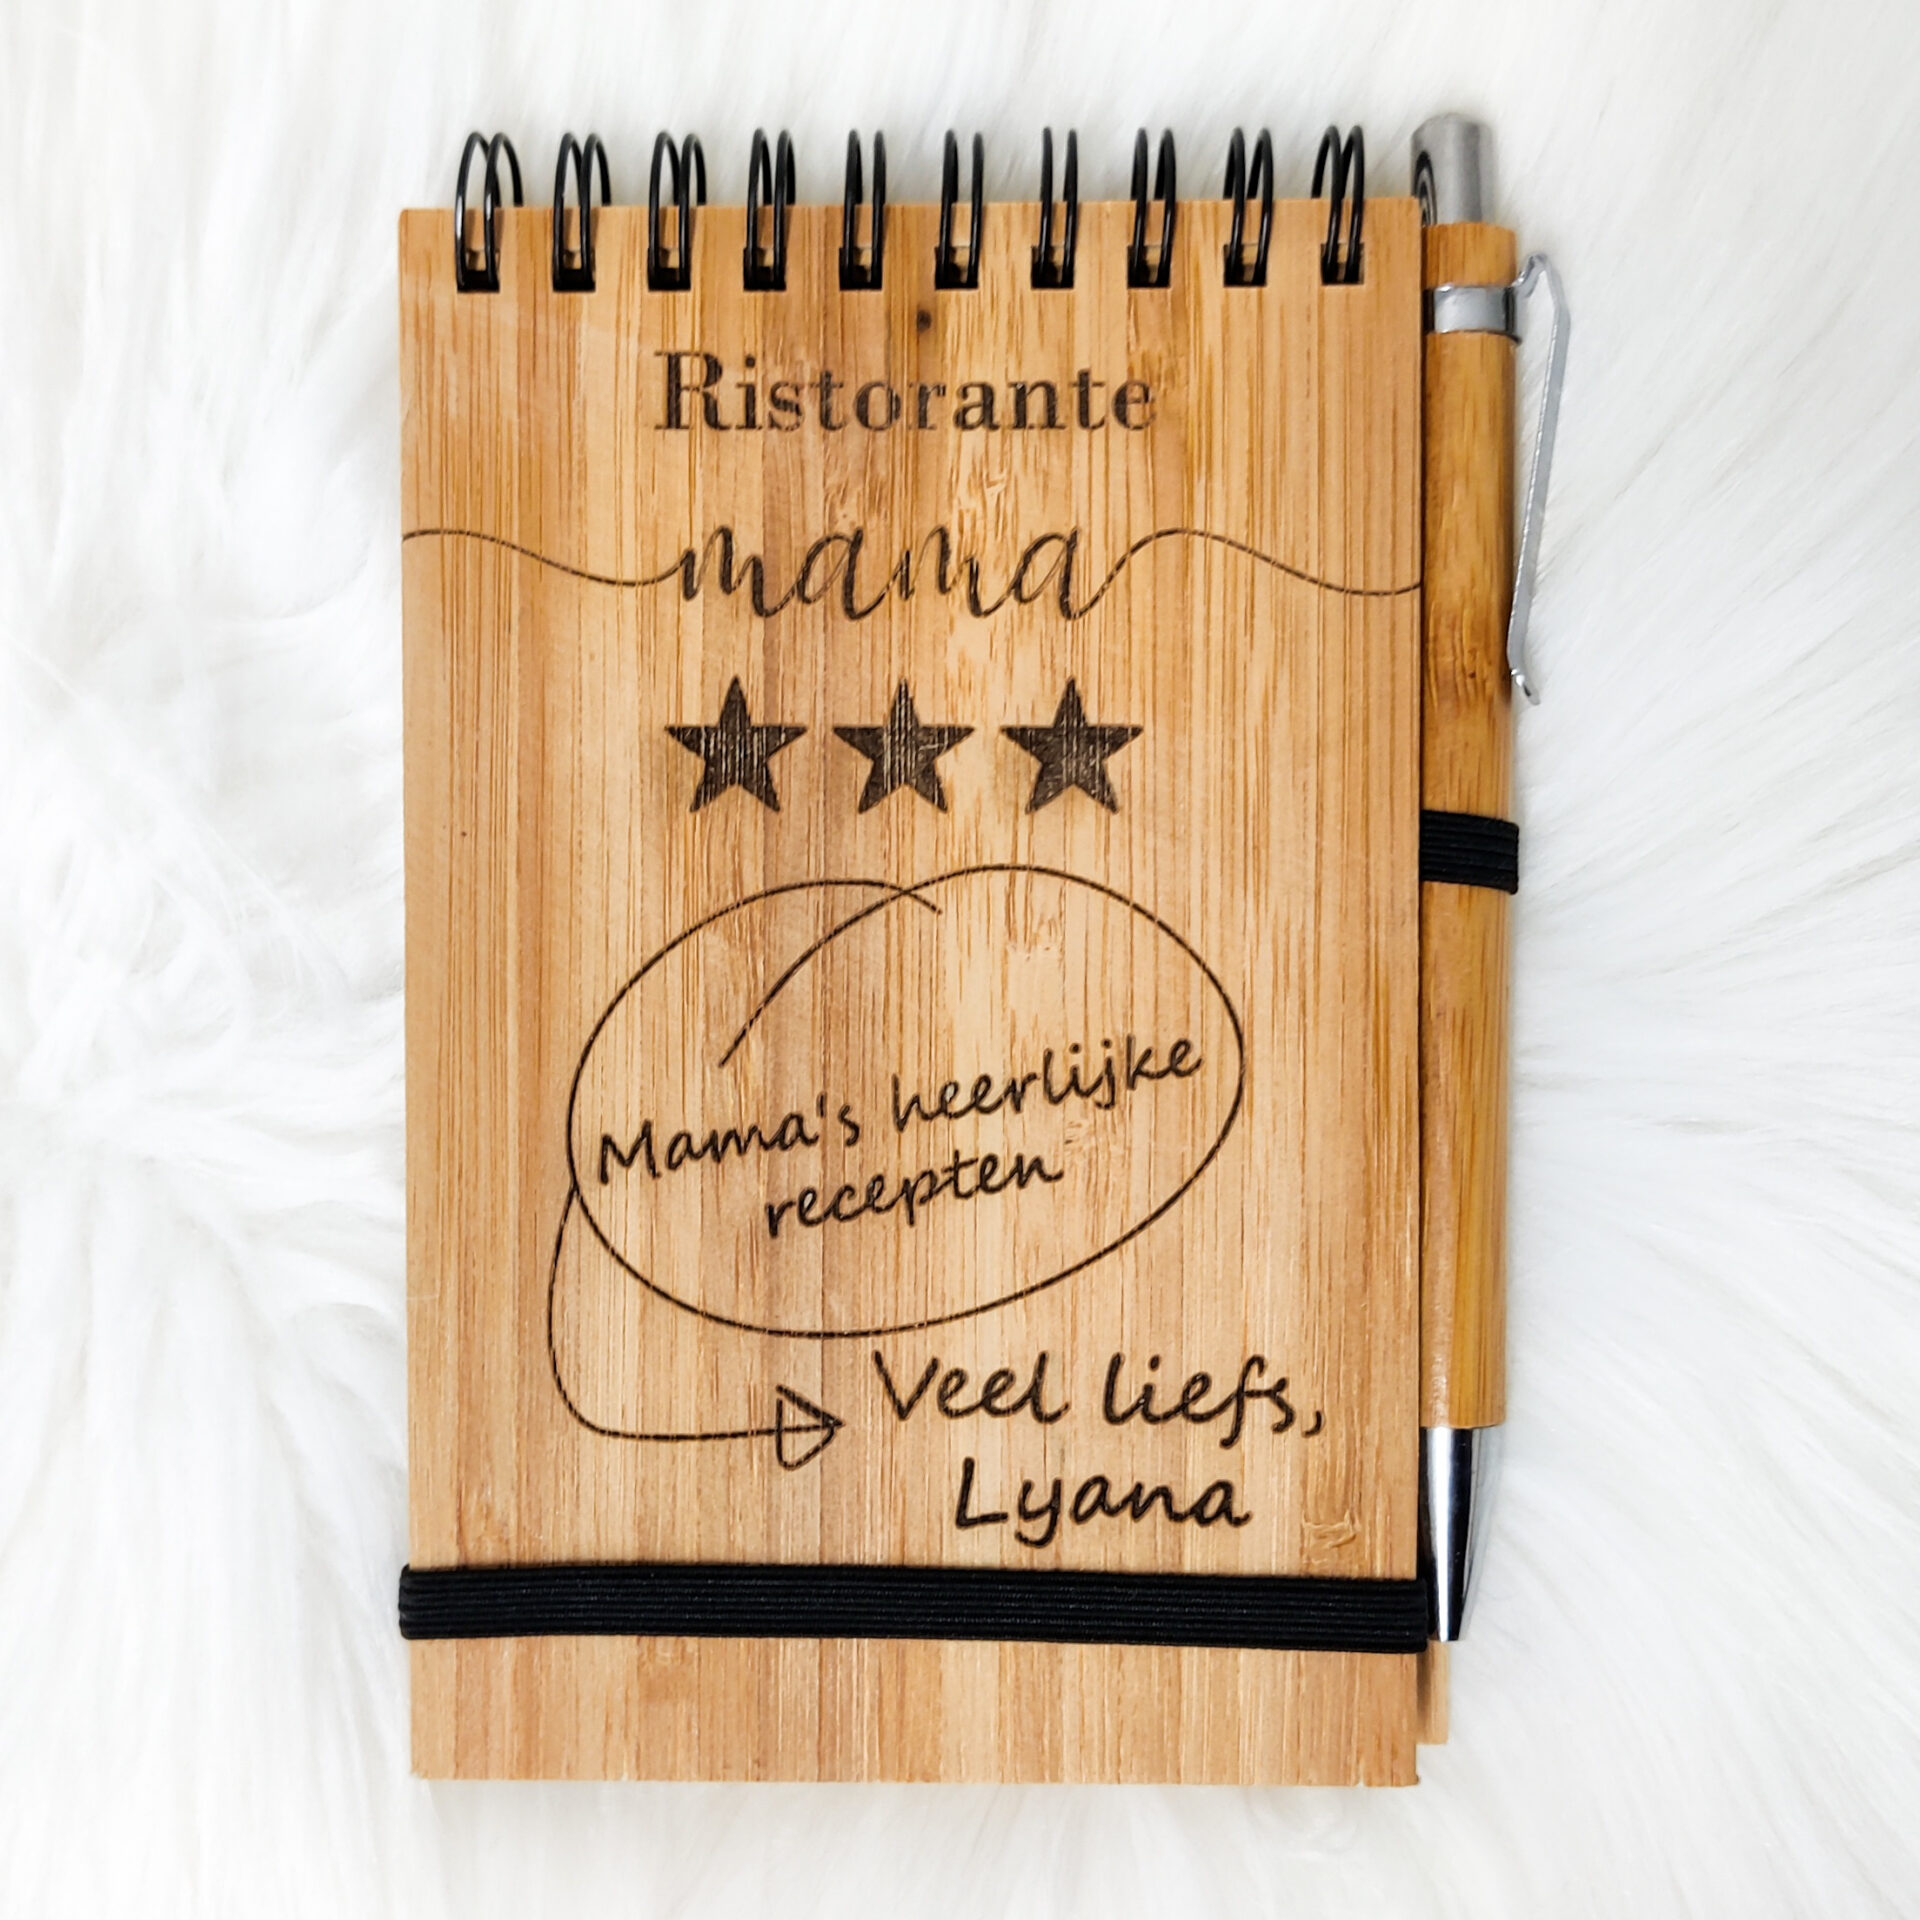 Ristorante
mama
Mama's heerlijke
recepten
Veel liefs,
Lyana